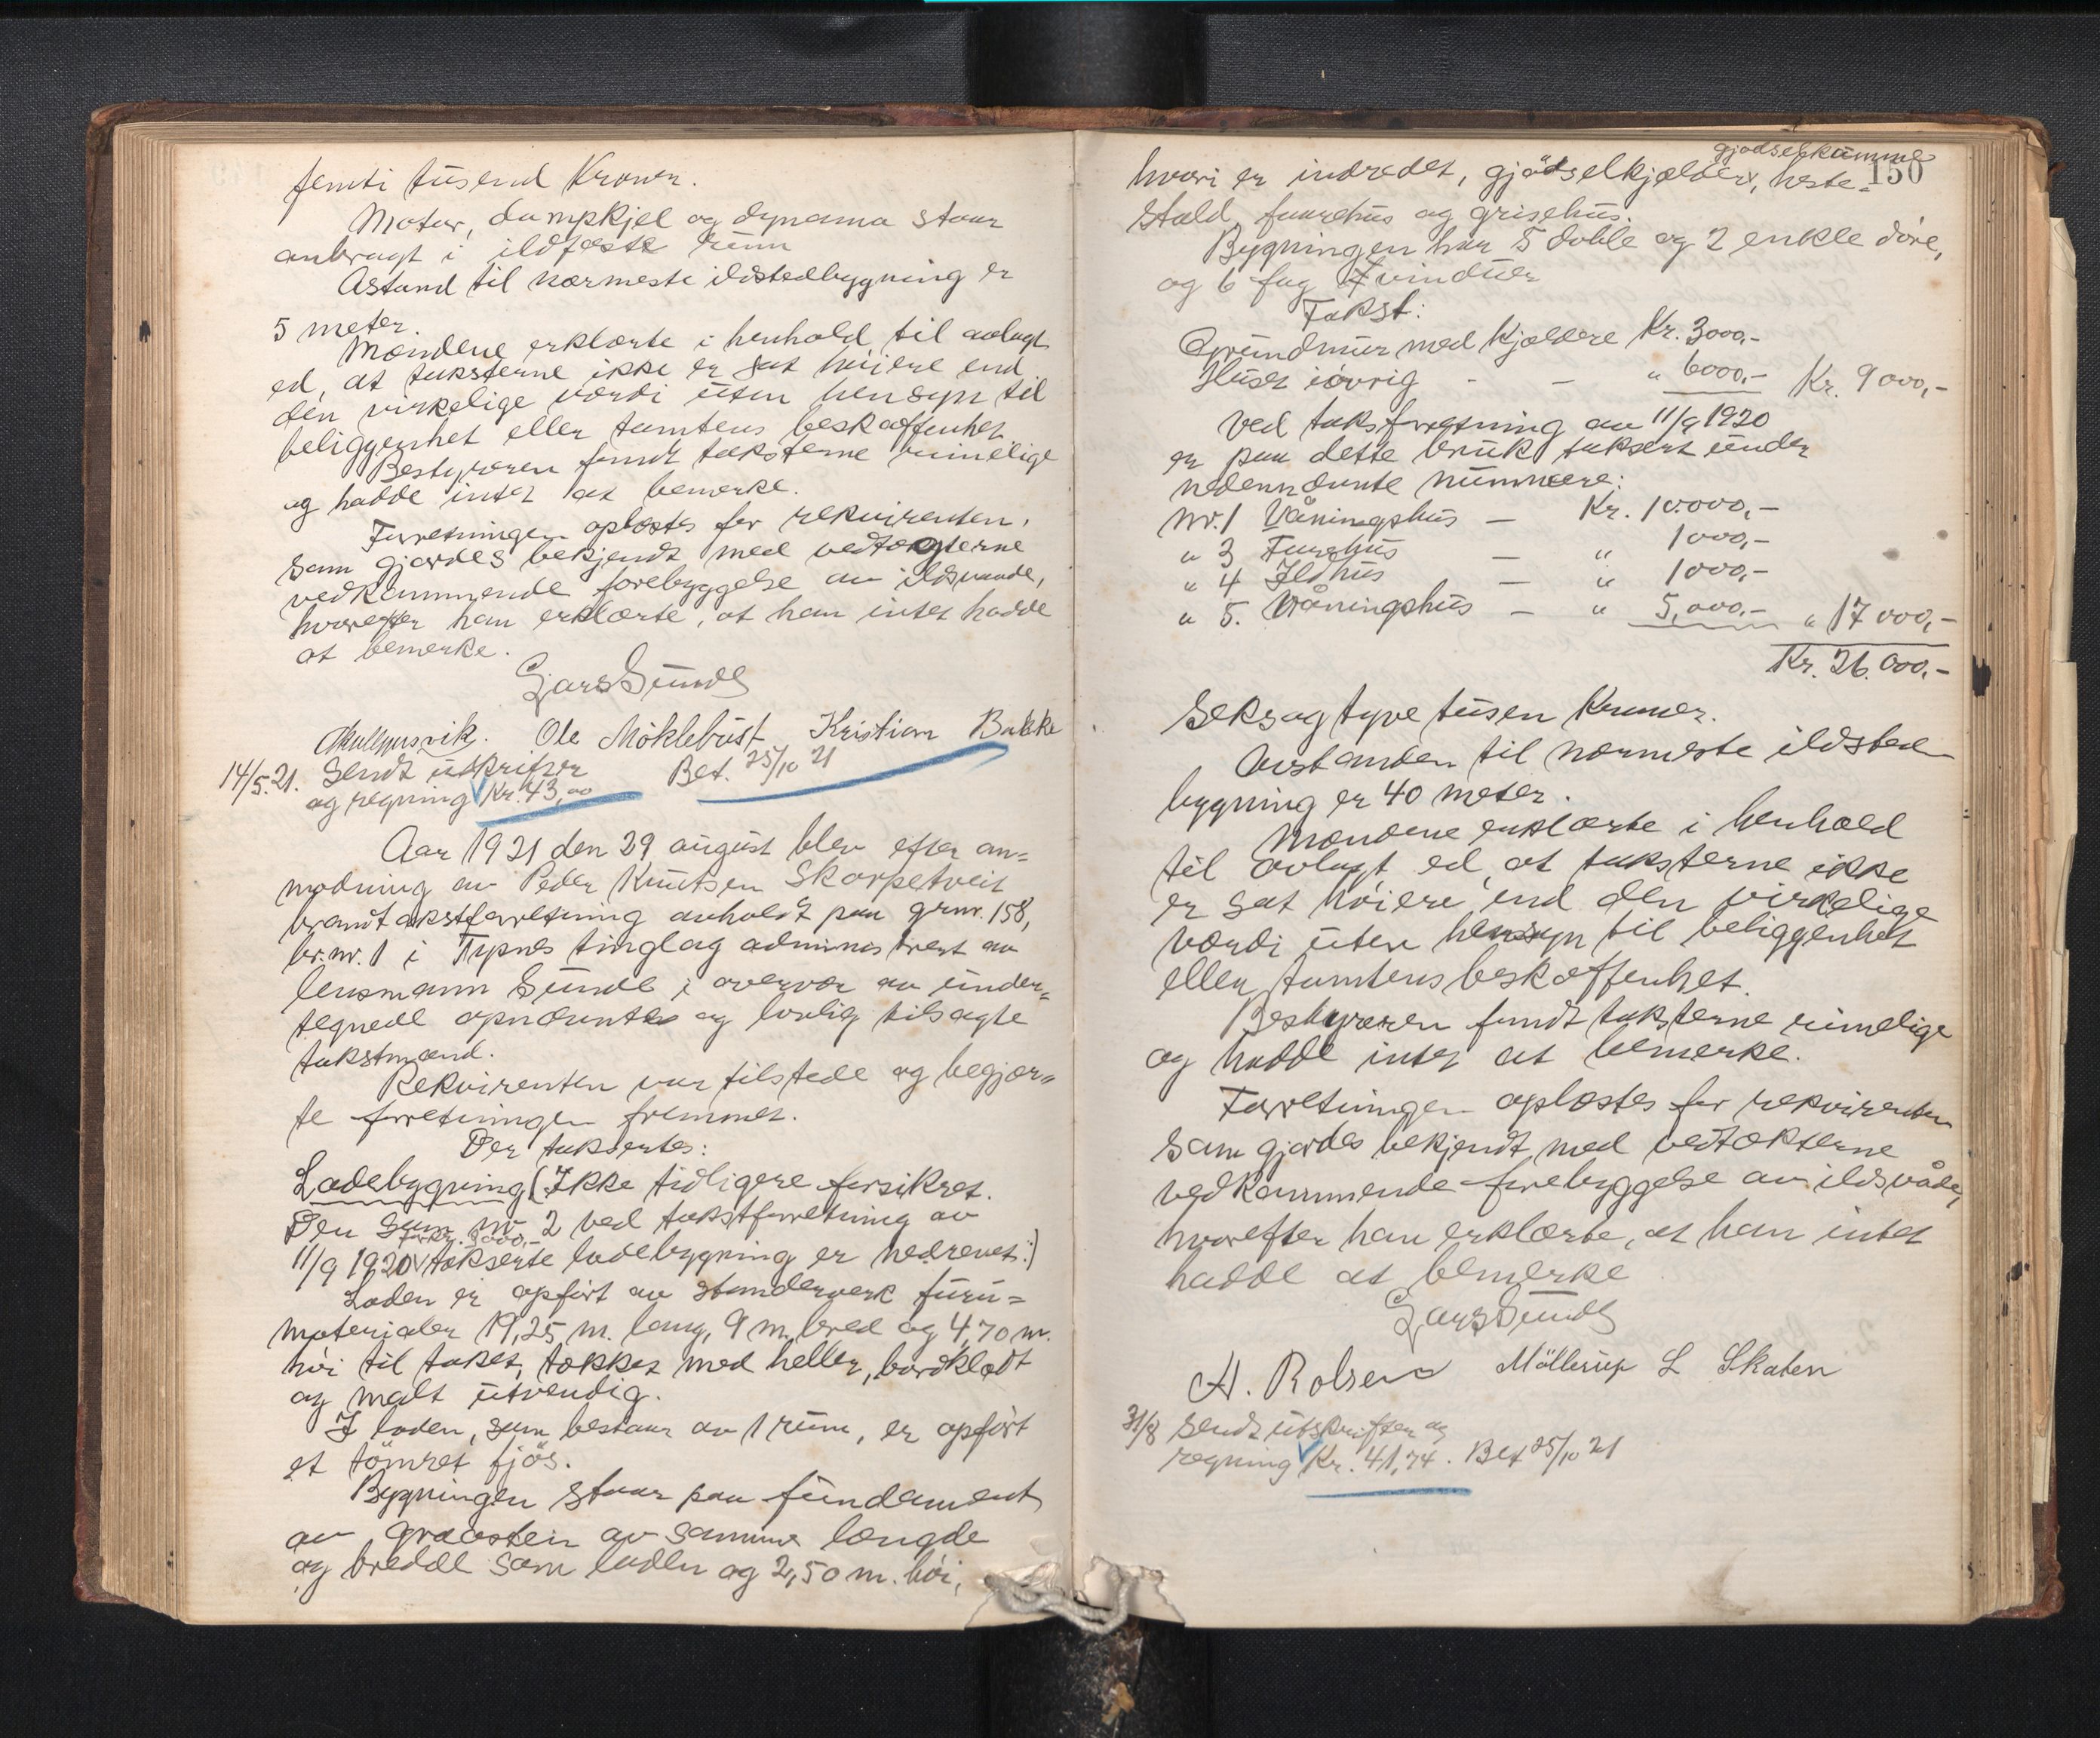 femti tusend Kroner.
Motor, dampkjel og dynamo staar
anbragt i ildfaste rum
Astand til nærmeste ildstedbygning er
5 meter.
Mændene erklærte i henhold til avlagt
ed, at taksterne ikke er sat høiere end
den virkelige værdi uten hensyn til
beliggenhet eller tomtens beskaffenhet.
Bestyreren fandt taksterne rimelige
og hadde intet at bemerke.
Forretningen oplæstes for rekvirenten,
som gjordes bekjendt med vedtægterne
vedkommende forebyggelse av ildsvaade,
hvorefter han erklærte, at han intet hadde
at bemerke.
Lars Sunde
Ole Möklebust Kristian Bakke
14/5.21. Sendt utskrifter Bet. 25/10 21
og regning Kr. 43,00
Aar 1921 den 29 august blev efter an=
modning av Peder Knutsen Skorpetveit
brandtakstforretning avholdt paa grnr. 158,
br.nr. 1 i Tysnes tinglag administrert av
lensmann Sunde i overvær av under=
tegnede opnævnte og lovlig tilsagte
takstmænd.
Rekvirenten var tilstede og begjær=
te forretningen fremmet.
Der taksertes:
Ladebygning (Ikke tidligere forsikret.
Den som nr 2 ved takstforretning av
for kr. 3000,-
11/9 1920 takserte ladebygning er nedrevet:)
Laden er opført av stenderverk furu=
materialer 19,25 m. lang, 9 m. bred og 4,70 m.
høi til taket, tækket med heller, bordklædt
og malt utvendig.
I laden, som bestaar av 1 rum, er opført
et tömret fjös.
Bygningen staar paa fundament
av graasten av samme længde
og bredde som laden og 2,50 m. høi,
150
gjødselkumme
hvori er indredet, gjødselkjælder, heste=
stald, faarehus og grisehus.
Bygningen har 5 doble og 2 enkle døre,
og 6 fag vinduer
Takst:
Grundmur med kjældere Kr. 3000,-
Huset iøvrig - - " 6000,- Kr. 9000,-
Ved takstforretning av 11/9 1920
er paa dette bruk taksert under
nedennævnte nummere:
Nr. 1 Våningshus - Kr. 10.000,-
" 3 Faarehus - " 1000,-
" 4 Ildhus - " 1000,-
" 5. Våningshus - " 5,000,- " 17000,-
Kr. 26.000,-
Seksogtyve tusen Kroner.
Avstanden til nærmeste ildsted
bygning er 40 meter.
Mændene erklærte i henhold
til avlagt ed, at taksterne ikke
er sat høiere end den virkelige
værdi uten hensyn til beliggenhet
eller tomtens beskaffenhet.
Bestyreren fandt taksterne rimelige
og hadde intet at bemerke.
Forretningen oplæstes for rekvirenten
som gjordes bekjendt med vedtækterne
vedkommende forebyggelse av ildsvåde,
hvorefter han erklærte, at han intet
hadde at bemerke
Lars Sunde
A. Rolsen Möllerup L Skaten
31/8 Sendt utskrifter og
regning Kr. 41,74. Bet 25/10 21